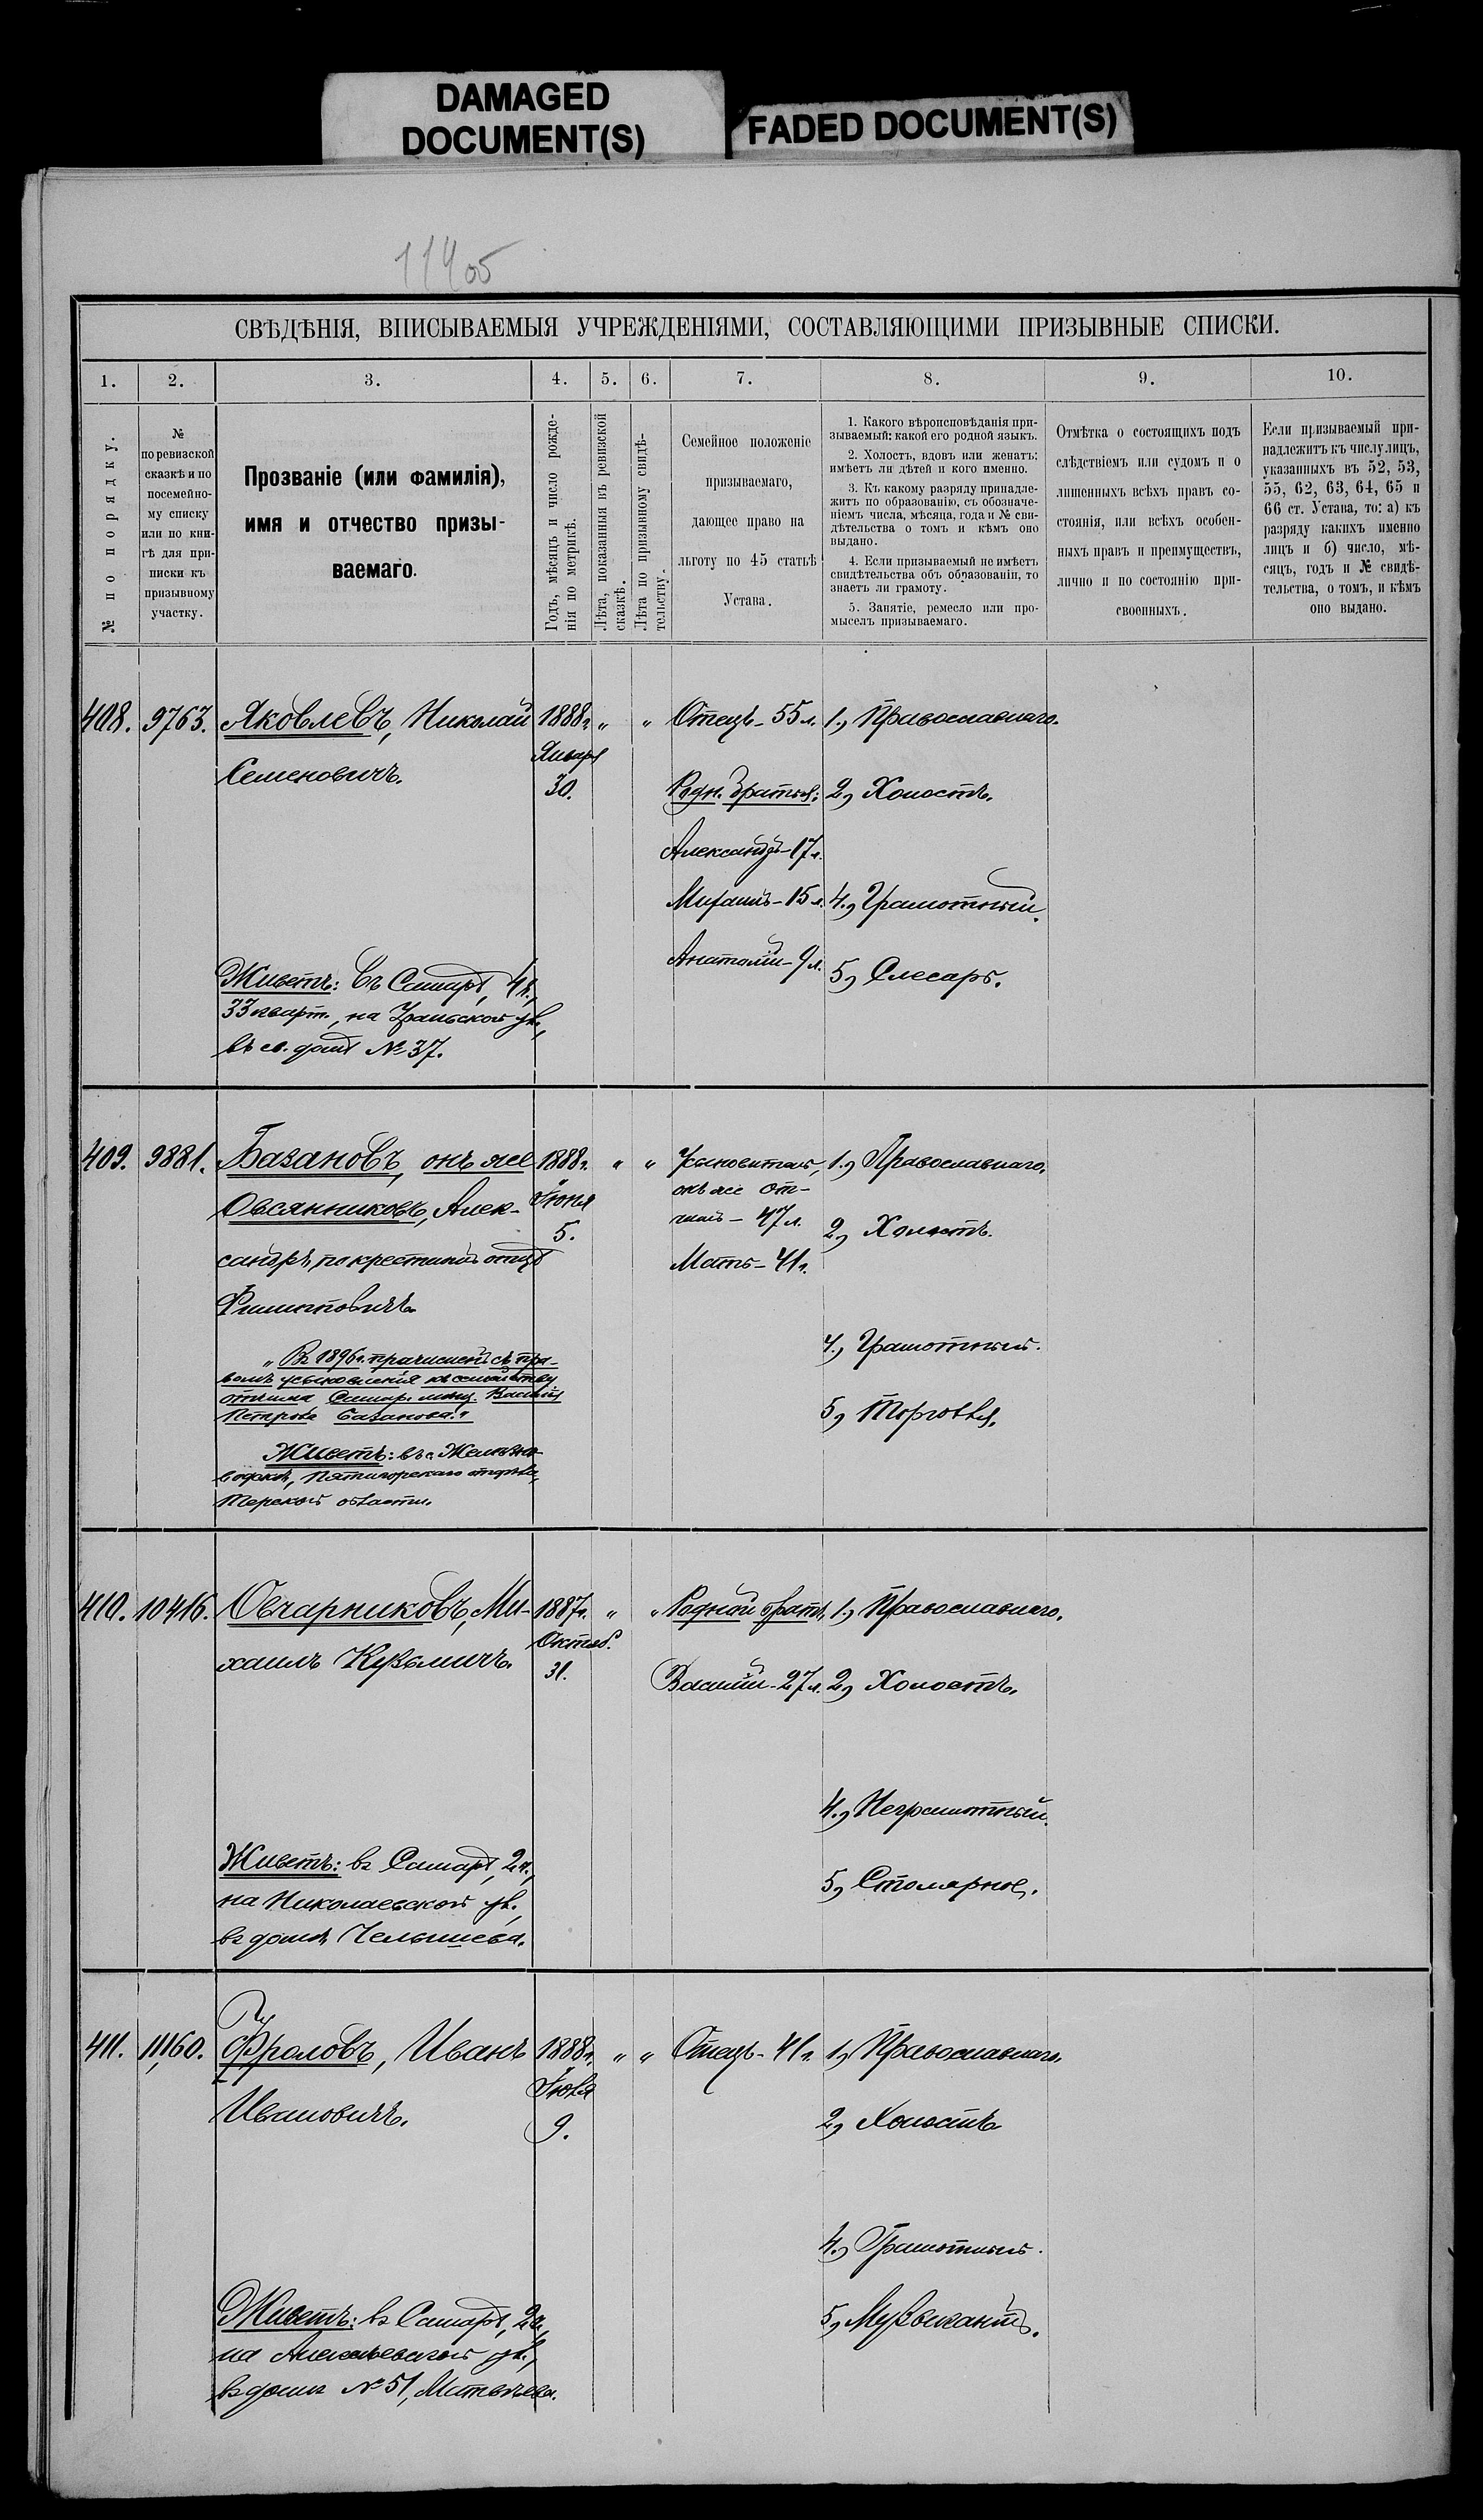 DAMAGED
DOCUMENT(S)
FADED DOCUMENT(S)
11405
СВѢДѢНІЯ, ВПИСЫВАЕМЫЯ УЧРЕЖДЕНІЯМИ, СОСТАВЛЯЮЩИМИ ПРИЗЫВНЫЕ СПИСКИ.
1. 2. 3. 4. 5. 6. 7. 8. 9. 10.
№ по порядку.
№
по ревизской
сказкѣ и по
посемейно-
му списку
или по кни-
гѣ для при-
писки къ
призывному
участку.
Прозваніе (или фамилія),
имя и отчество призы-
ваемаго.
Годъ, мѣсяцъ и число рожде-
нія по метрикѣ.
Лѣта, показанныя въ ревизской
сказкѣ.
Лѣта по призывному свидѣ-
тельству.
Семейное положеніе
призываемаго,
дающее право на
льготу по 45 статьѣ
Устава.
1. Какого вѣроисповѣданія при-
зываемый: какой его родной языкъ.
2. Холостъ, вдовъ или женатъ:
имѣетъ ли дѣтей и кого именно.
3. Къ какому разряду принадле-
житъ по образованію, съ обозначе-
ніемъ числа, мѣсяца, года и № сви-
дѣтельства о томъ и кѣмъ оно
выдано.
4. Если призываемый не имѣетъ
свидѣтельства объ образованіи, то
знаетъ ли грамоту.
5. Занятіе, ремесло или про-
мыселъ призываемаго.
Отмѣтка о состоящихъ подъ
слѣдствіемъ или судомъ и о
лишенныхъ всѣхъ правъ со-
стоянія, или всѣхъ особен-
ныхъ правъ и преимуществъ,
лично и по состоянію при-
своенныхъ.
Если призываемый при-
надлежитъ къ числу лицъ,
указанныхъ въ 52, 53,
55, 62, 63, 64, 65 и
66 ст. Устава, то: а) къ
разряду какихъ именно
лицъ и б) число, мѣ-
сяцъ, годъ и № свидѣ-
тельства, о томъ, и кѣмъ
оно выдано.
408. 9763. Яковлевъ, Николай
Семеновичъ.
Живетъ: въ Самарѣ, 4 ч.,
33 кварт., на Уральской ул.,
въ св. домѣ № 37.
1888 г.
Января
30.
„ „
Отецъ - 55 л.
Родн. братья:
Александръ - 17 л.
Михаилъ - 15 л.
Анатолій - 9 л.
1, Православнаго.
2, Холостъ.
4., Грамотный.
5, Слесарь.
409. 9881. Базановъ, онъ же
Овсянниковъ, Алек-
сандръ, по крестному отцу
Филипповичъ.
„ Въ 1896 г. причисленъ съ пра-
вомъ усыновленія къ семейству
отчима Самар. мѣщ. Василія
Петрова Базанова. "
Живетъ: въ с. Желѣзно-
водскѣ, Пятигорскаго отдѣла,
Терской области.
1888 г.
Іюня
5.
„ „
Усыновитель,
онъ же от-
чимъ - 47 л.
Мать - 41 г.
1., Православнаго.
2, Холостъ.
4., Грамотный.
5, Торговля.
410. 10416. Овчарниковъ, Ми-
хаилъ Кузьмичъ.
Живетъ: въ Самарѣ, 2 ч.,
на Николаевской ул.,
въ домѣ Челышева.
1887 г.
Октяб.
31.
„ „
Родной братъ,
Василій - 27 л.
1., Православнаго.
2, Холостъ.
4., Неграмотный.
5, Столярное.
411. 11160. Фроловъ, Иванъ
Ивановичъ.
Живетъ: въ Самарѣ, 2 ч.,
на Алексѣевской ул.,
въ домѣ № 51, Матвѣева.
1888 г.
Іюля
9.
„ „
Отецъ - 41 г.
1, Православнаго.
2, Холостъ
4., Грамотный.
5, Музыкантъ.